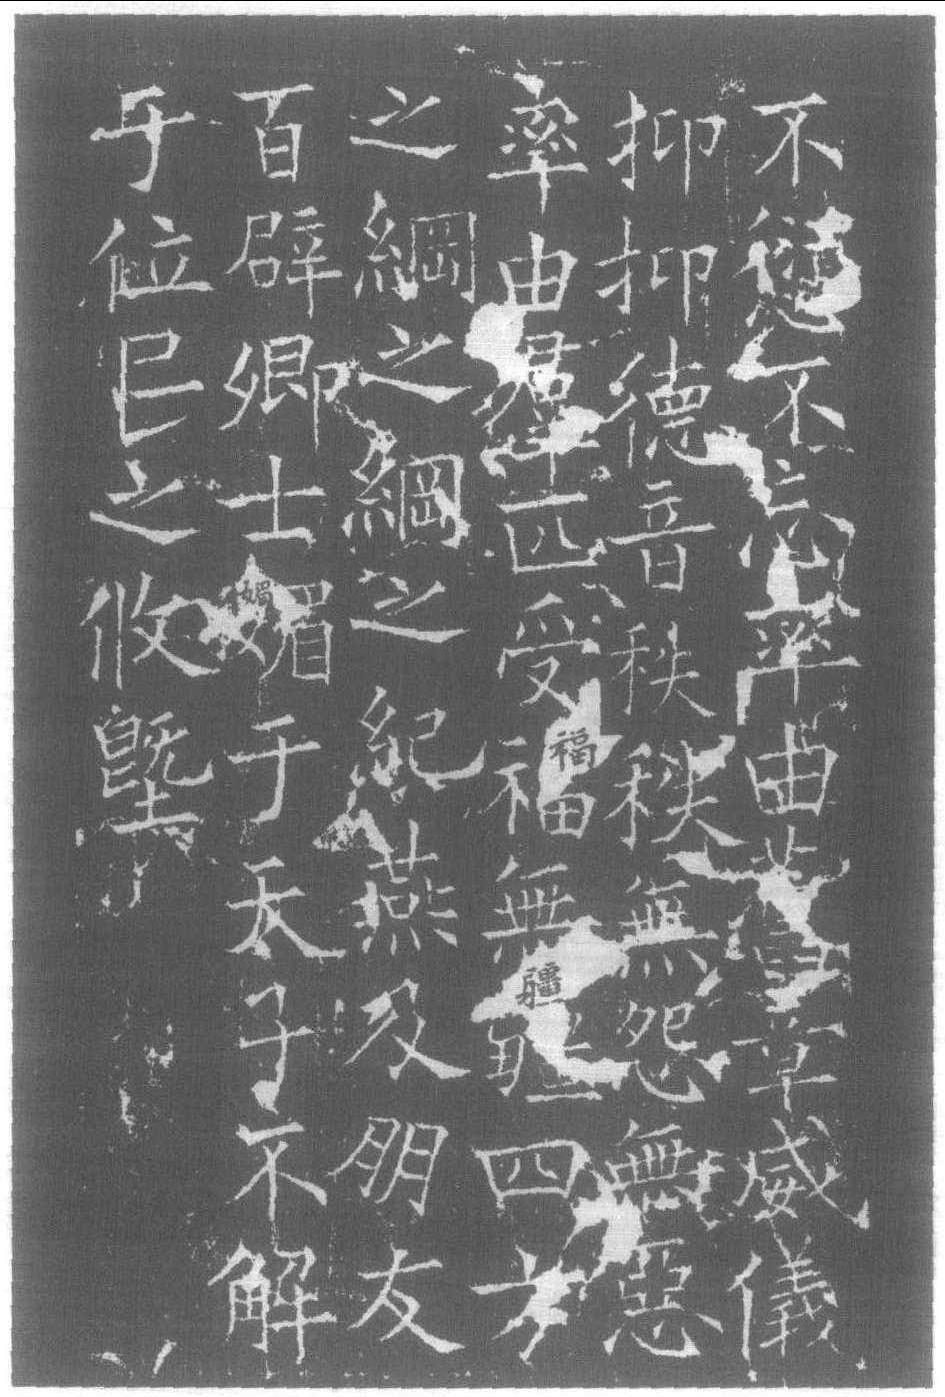 不愆不忘率由舊章威儀
抑抑德音秩秩無怨無惡
率由羣匹受福無疆四方
福
疆
之綱之綱之紀燕及朋友
百辟卿士媚于天子不解
媚
于位民之攸塈